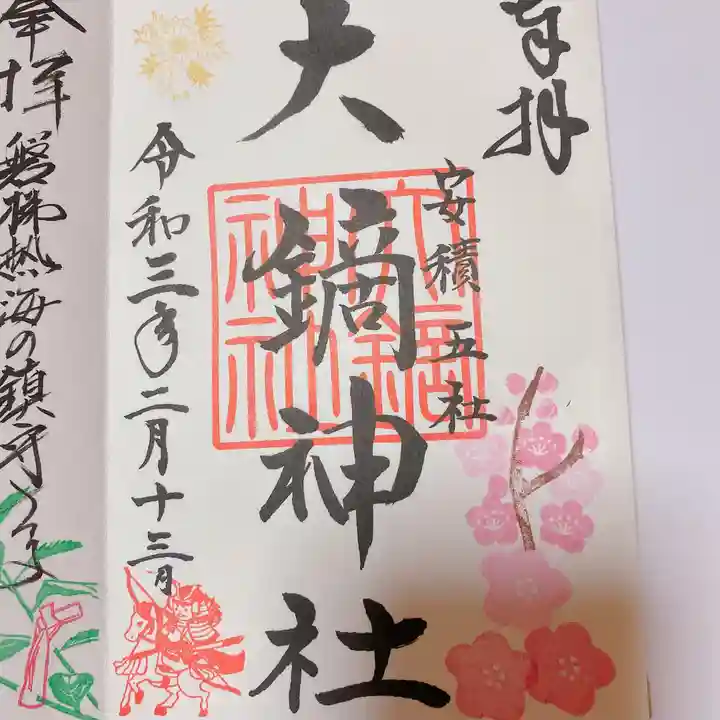 奉拝
安積五社
大鏑神社
令和三年二月十三日
奉拝
磐梯熱海の鎮守